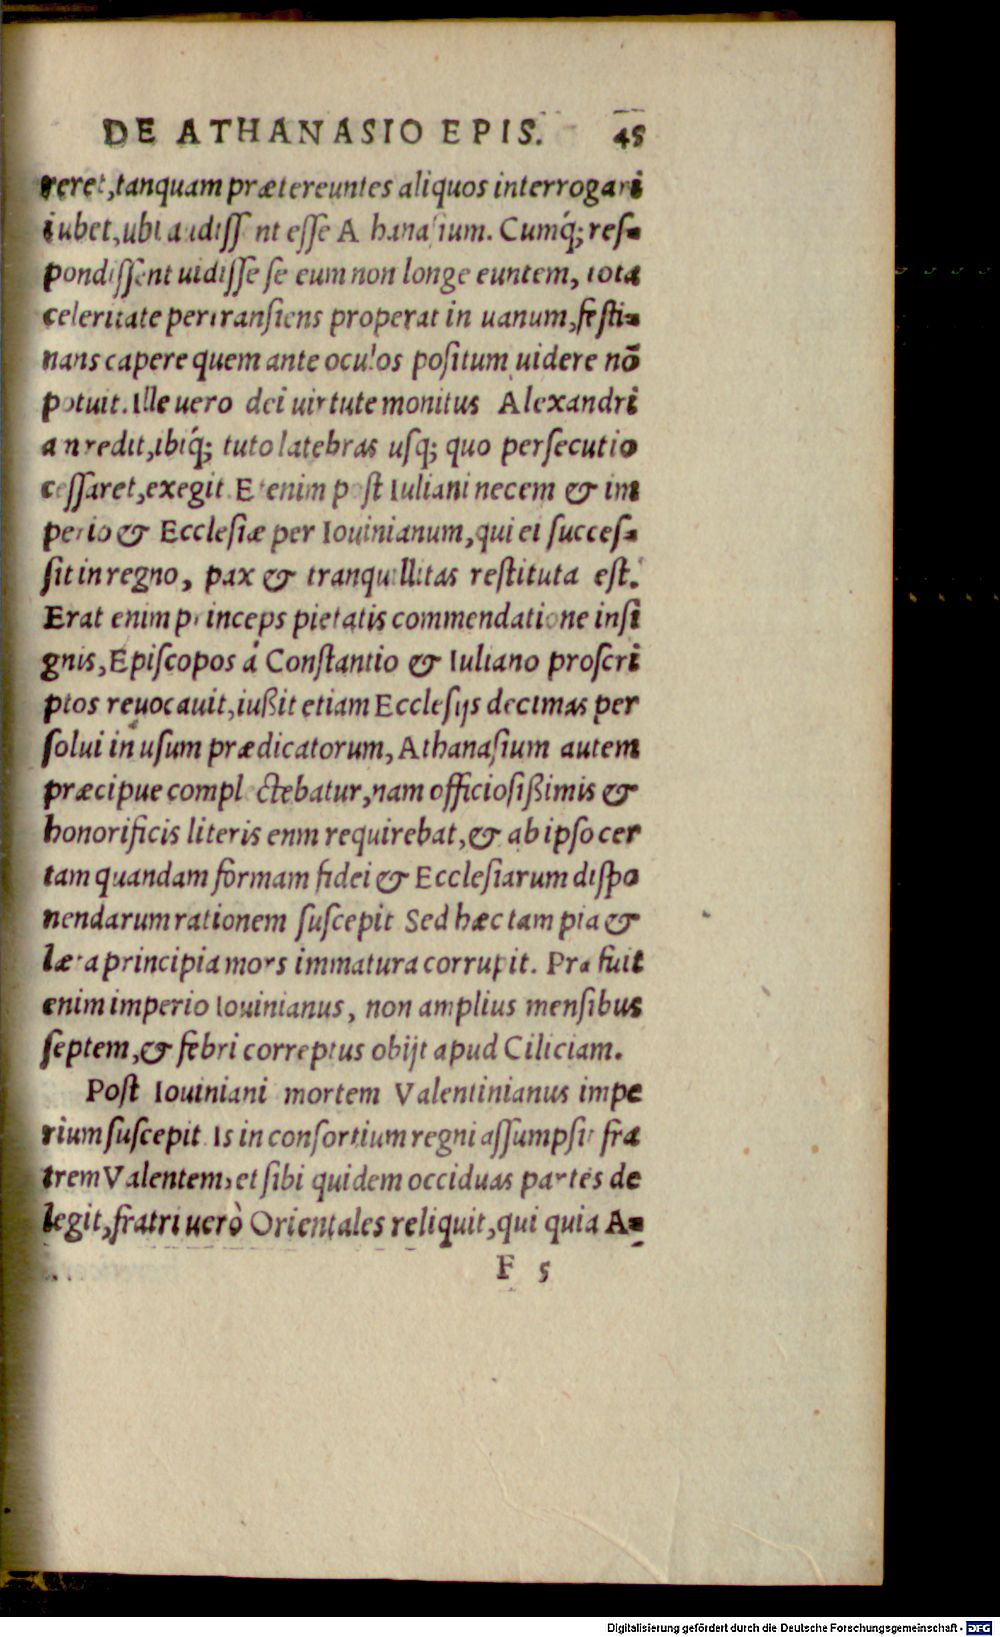 DE ATHANASIO EPIS. 45
reret, tanquam prætereuntes aliquos interrogari
iubet, ubi audissent esse Athanasium. Cumq́; reſ-
pondiſſent uidiſſe ſe eum non longe euntem, tota
celeritate pertransiens properat in uanum, feſti-
nans capere quem ante oculos poſitum uidere nō
potuit. Ille uero dei uirtute monitus Alexandri
an redit, ibiq́; tuto latebras uſq; quo perſecutio
ceſſaret, exegit. Etenim poſt Iuliani necem & im
perio & Eccleſiæ per Iouinianum, qui ei ſucceſ-
ſit in regno, pax & tranquillitas reſtituta eſt.
Erat enim princeps pietatis commendatione inſi
gnis, Epiſcopos á Conſtantio & Iuliano proſcri
ptos reuocauit, iußit etiam Eccleſijs decimas per
ſolui in uſum prædicatorum, Athanaſium autem
præcipue complectebatur, nam officioſißimis &
honorificis literis enm requirebat, & ab ipſo cer
tam quandam formam fidei & Eccleſiarum diſpo
nendarum rationem ſuſcepit Sed hæc tam pia &
læta principia mors immatura corrupit. Præfuit
enim imperio Iouinianus, non amplius menſibus
ſeptem, & febri correptus obijt apud Ciliciam.
Poſt Iouiniani mortem Valentinianus impe
rium ſuſcepit Is in conſortium regni aſſumpſit fra
trem Valentem, et ſibi quidem occiduas partes de
legit, fratri uerò Orientales reliquit, qui quia A-
F 5
Digitalisierung gefördert durch die Deutsche Forschungsgemeinschaft - DFG